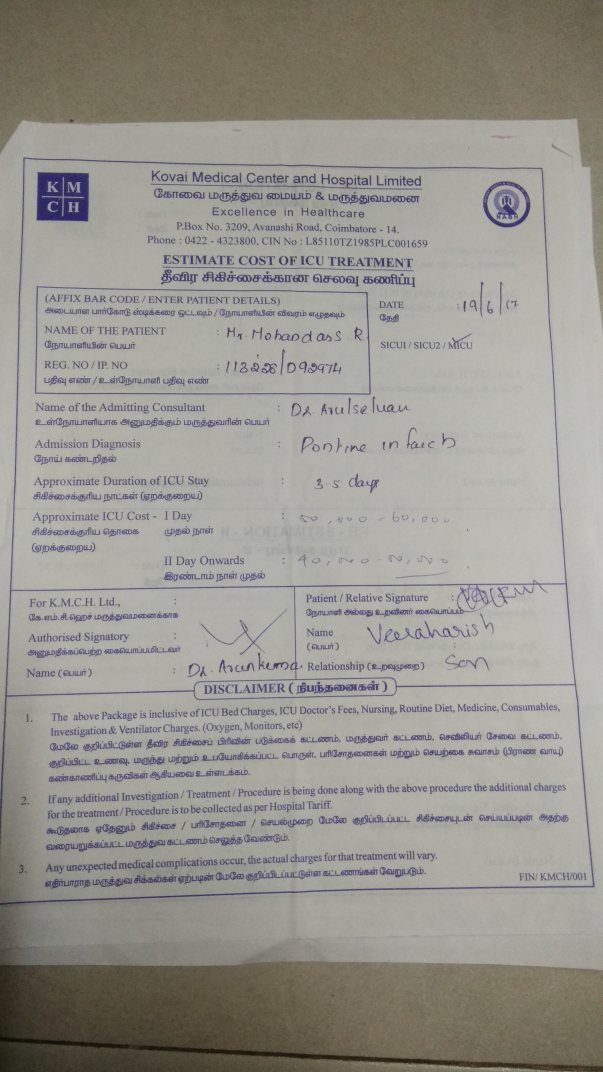 K M
C H
Kovai Medical Center and Hospital Limited
கோவை மருத்துவ மையம் & மருத்துவமனை
Excellence in Healthcare
P.Box No. 3209, Avanashi Road, Coimbatore - 14.
Phone : 0422 - 4323800, CIN No : L85110TZ1985PLC001659
NABH
ESTIMATE COST OF ICU TREATMENT
தீவிர சிகிச்சைக்கான செலவு கணிப்பு
(AFFIX BAR CODE / ENTER PATIENT DETAILS)
அடையாள பார்கோடு ஸ்டிக்கரை ஒட்டவும் / நோயாளியின் விவரம் எழுதவும்
NAME OF THE PATIENT : Mr. Mohandass R
நோயாளியின் பெயர்
REG. NO / IP. NO : 113226/092974
பதிவு எண் / உள்நோயாளி பதிவு எண்
DATE : 19/6/17
தேதி
SICU1 / SICU2 / MICU
Name of the Admitting Consultant : Dr. Arulselvan
உள்நோயாளியாக அனுமதிக்கும் மருத்துவரின் பெயர்
Admission Diagnosis : Pontine infarct
நோய் கண்டறிதல்
Approximate Duration of ICU Stay : 3-5 days
சிகிச்சைக்குரிய நாட்கள் (ஏறக்குறைய)
Approximate ICU Cost - I Day : 50,000 - 60,000
சிகிச்சைக்குரிய தொகை முதல் நாள்
(ஏறக்குறைய)
II Day Onwards : 40,000 - 50,000
இரண்டாம் நாள் முதல்
For K.M.C.H. Ltd., :
கே.எம்.சி.ஹெச் மருத்துவமனைக்காக
Authorised Signatory :
அனுமதிக்கப்பெற்ற கையொப்பமிட்டவர்
Name (பெயர்) : Dr. Arunkumar
Patient / Relative Signature :
நோயாளி அல்லது உறவினர் கையொப்பம்
Name : Veeraharish
(பெயர்)
Relationship (உறவுமுறை) : Son
DISCLAIMER (நிபந்தனைகள்)
1. The above Package is inclusive of ICU Bed Charges, ICU Doctor's Fees, Nursing, Routine Diet, Medicine, Consumables,
Investigation & Ventilator Charges. (Oxygen, Monitors, etc)
மேலே குறிப்பிட்டுள்ள தீவிர சிகிச்சைப் பிரிவின் படுக்கைக் கட்டணம், மருத்துவர் கட்டணம், செவிலியர் சேவை கட்டணம்,
குறிப்பிட்ட உணவு, மருந்து மற்றும் உபயோகிக்கப்பட்ட பொருள், பரிசோதனைகள் மற்றும் செயற்கை சுவாசம் (பிராண வாயு)
கண்காணிப்பு கருவிகள் ஆகியவை உள்ளடக்கம்.
2. If any additional Investigation / Treatment / Procedure is being done along with the above procedure the additional charges
for the treatment / Procedure is to be collected as per Hospital Tariff.
கூடுதலாக ஏதேனும் சிகிச்சை / பரிசோதனை / செயல்முறை மேலே குறிப்பிடப்பட்ட சிகிச்சையுடன் செய்யப்படின் அதற்கு
வரையறுக்கப்பட்ட மருத்துவ கட்டணம் செலுத்த வேண்டும்.
3. Any unexpected medical complications occur, the actual charges for that treatment will vary.
எதிர்பாராத மருத்துவ சிக்கல்கள் ஏற்படின் மேலே குறிப்பிடப்பட்டுள்ள கட்டணங்கள் வேறுபடும்.
FIN/ KMCH/001